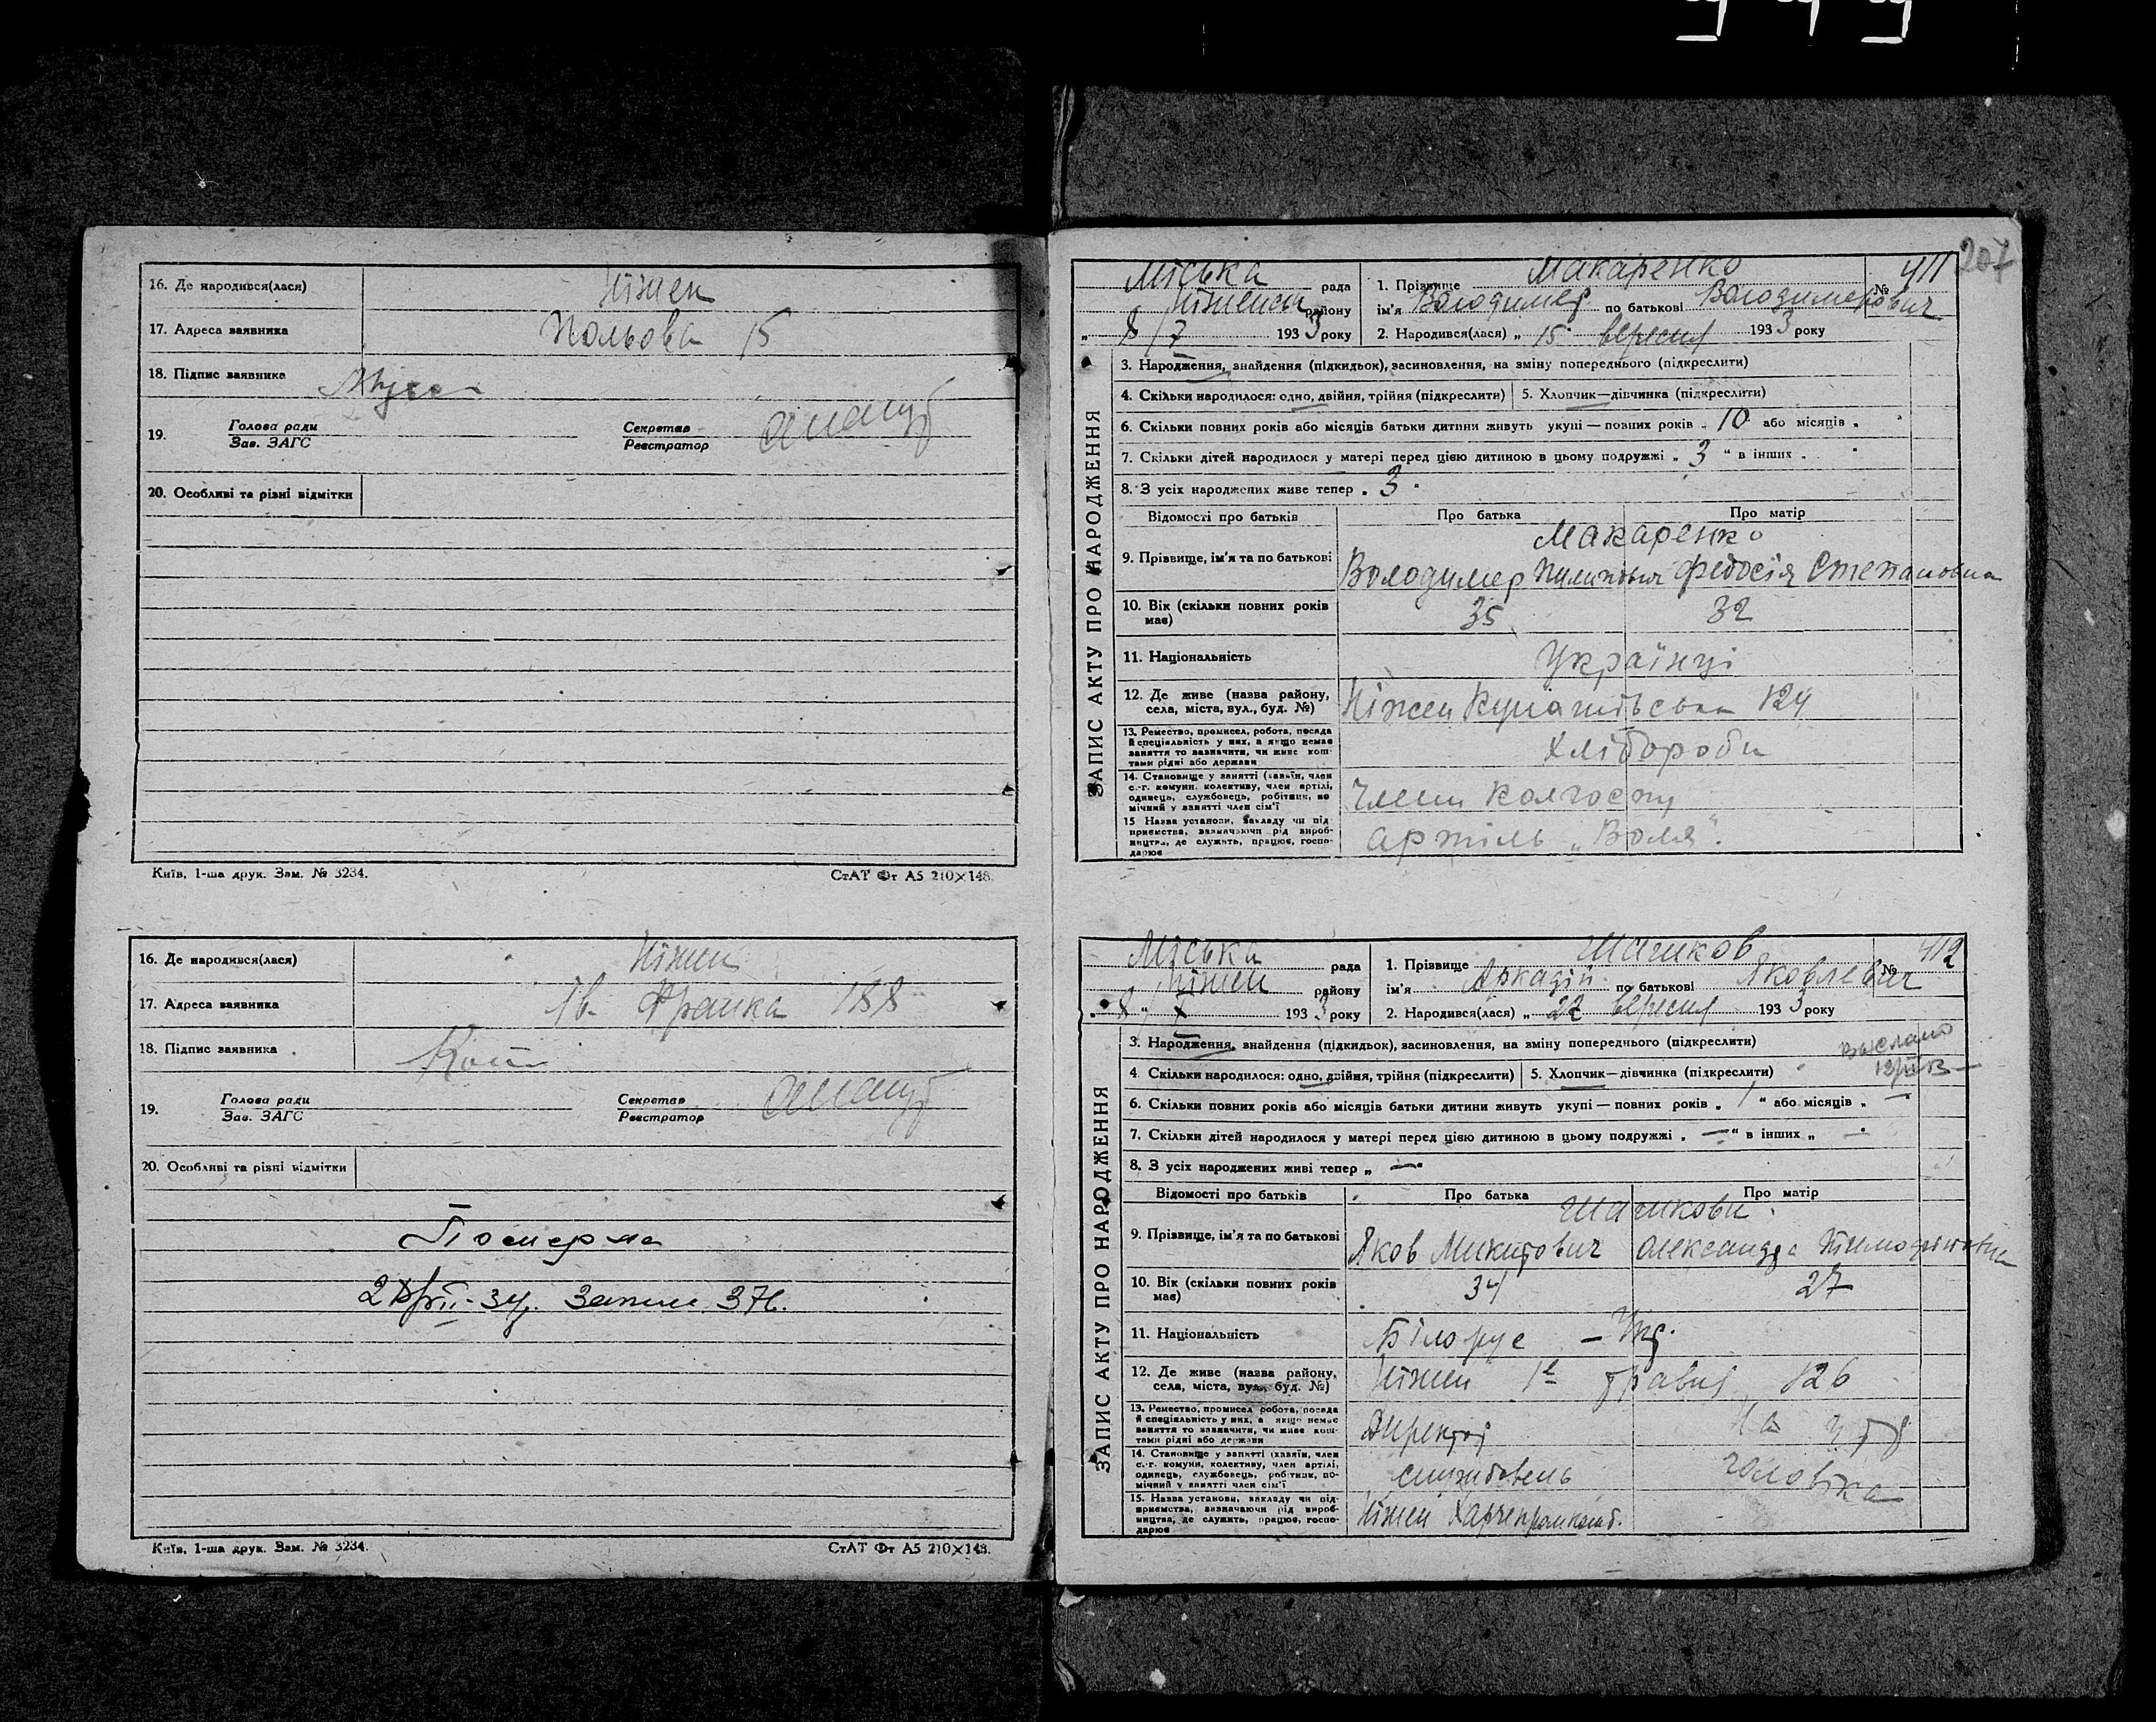 16. Де народився(лася) Ніжен
17. Адреса заявника Польова 15
18. Підпис заявника
19. Голова ради
Зав. ЗАГС
Секретар
Реєстратор
20. Особливі та різні відмітки
Київ, 1-ша друк. Зам. № 3234.
СтАТ Фт А5 210×148.
16. Де народився(лася) Ніжен
17. Адреса заявника Ів. Франка 188
18. Підпис заявника
19. Голова ради
Зав. ЗАГС
Секретар
Реєстратор
20. Особливі та різні відмітки
Померла
Запис 376.
Київ, 1-ша друк. Зам. № 3234.
СтАТ Фт А5 210×148.
207
ЗАПИС АКТУ ПРО НАРОДЖЕННЯ
Міська рада
Ніженськ району
" 8 / 7 1933 року
1. Прізвище Макаренко № 411
ім'я Володимер по батькові Володимерович
2. Народився(лася) „ 15 вересня 1933 року
3. Народження, знайдення (підкидьок), засиновлення, на зміну попереднього (підкреслити)
4. Скільки народилося: одно, двійня, трійня (підкреслити) 5. Хлопчик—дівчинка (підкреслити)
6. Скільки повних років або місяців батьки дитини живуть укупі — повних років „ 10 або місяців „
7. Скільки дітей народилося у матері перед цією дитиною в цьому подружжі „ 3 “ в інших „
8. З усіх народжених живе тепер „ 3 "
Відомості про батьків Про батька Про матір
Макаренко
9. Прізвище, ім'я та по батькові Володимер Пилипович Федосія Степановна
10. Вік (скільки повних років має) 35 32
11. Національність Українці
12. Де живе (назва району,
села, міста, вул., буд. №) Ніжен 124
13. Ремество, промисел, робота, посада
й спеціальність у них, а якщо немає
заняття то зазначити, чи живе кош-
тами рідні або держави
Хлібороби
14. Становище у занятті (хазяїн, член
с.-г. комуни, колективу, член артілі,
одинець, службовець, робітник, по
мічний у занятті член сім'ї
члени колгоспу
15 Назва установи, закладу чи під
приємства, зазначаючи рід вироб-
ництва, де служить, працює, госпо-
дарює
артіль „Воля".
ЗАПИС АКТУ ПРО НАРОДЖЕННЯ
Міська рада
Ніжен району
" 8 " 1933 року
1. Прізвище Шашков № 412
ім'я Аркадій по батькові Яковлевич
2. Народився(лася) „ 22 вересня 1933 року
3. Народження, знайдення (підкидьок), засиновлення, на зміну попереднього (підкреслити)
4. Скільки народилося: одно, двійня, трійня (підкреслити) 5. Хлопчик—дівчинка (підкреслити)
6. Скільки повних років або місяців батьки дитини живуть укупі — повних років „ 1 “ або місяців „ —
7. Скільки дітей народилося у матері перед цією дитиною в цьому подружжі „ — “ в інших „ —
8. З усіх народжених живі тепер „ — "
Відомості про батьків Про батька Про матір
Шашкови
9. Прізвище, ім'я та по батькові Яков Микитович Олександра
10. Вік (скільки повних років має) 34 27
11. Національність Білорус — Укр.
12. Де живе (назва району,
села, міста, вул., буд. №) Ніжен 1е травня 126
13. Ремество, промисел робота, посада
й спеціальність у них, а якщо немає
заняття то зазначити, чи живе кош-
тами рідні або держави
Директор На утр
14. Становище у занятті (хазяїн, член
с.-г. комуни, колективу, член артілі,
одинець, службовець, робітник, по-
мічний у занятті член сім'ї
службовець чоловіка
15. Назва установи, закладу чи під-
приємства, зазначаючи рід вироб-
ництва, де служить, працює, госпо-
дарює
Ніжен Харчепромкомб.